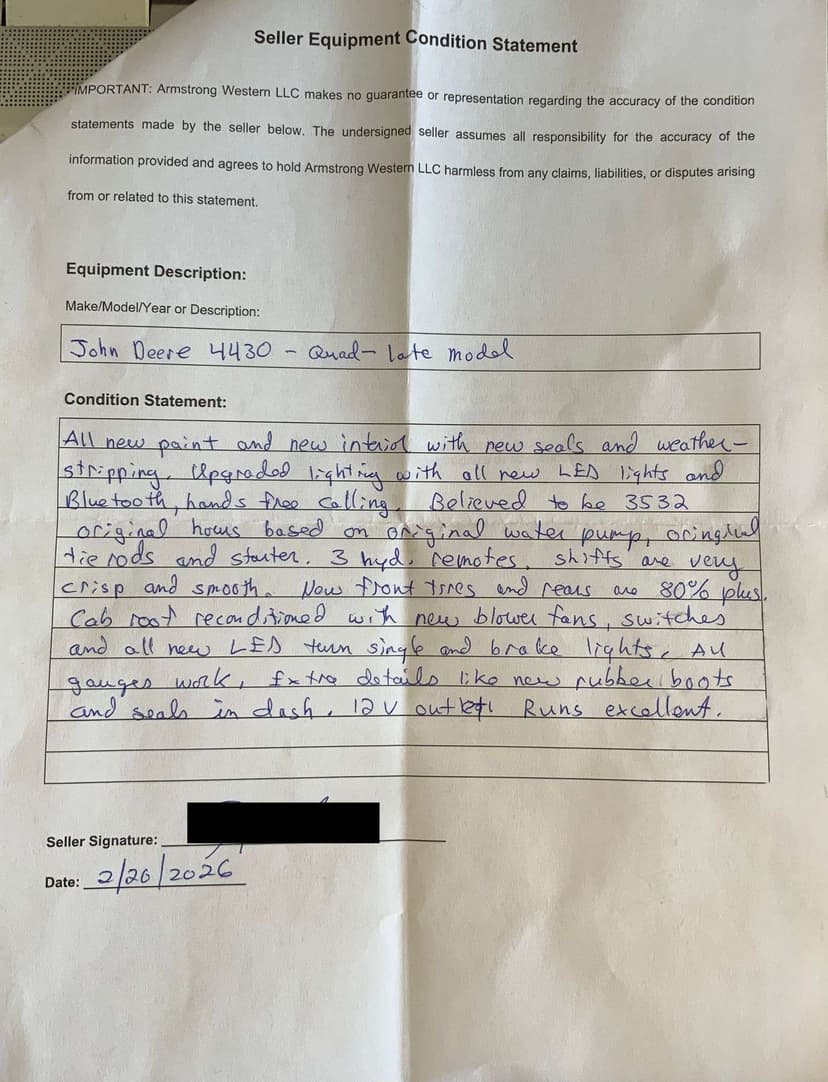 Seller Equipment Condition Statement
IMPORTANT: Armstrong Western LLC makes no guarantee or representation regarding the accuracy of the condition
statements made by the seller below. The undersigned seller assumes all responsibility for the accuracy of the
information provided and agrees to hold Armstrong Western LLC harmless from any claims, liabilities, or disputes arising
from or related to this statement.
Equipment Description:
Make/Model/Year or Description:
John Deere 4430 - Quad - late model
Condition Statement:
All new paint and new interior with new seals and weather-
stripping. Upgraded lighting with all new LED lights and
Bluetooth, hands free calling. Believed to be 3532
original hours based on original water pump, oringinal
tie rods and starter. 3 hyd. remotes, shifts are very
crisp and smooth. New front tires and rears are 80% plus.
Cab roof reconditioned with new blower fans, switches
and all new LED turn single and brake lights. All
gauges work, Extra details like new rubber boots
and seals in dash, 12 V outlet. Runs excellent.
Seller Signature:
Date: 2/26/2026